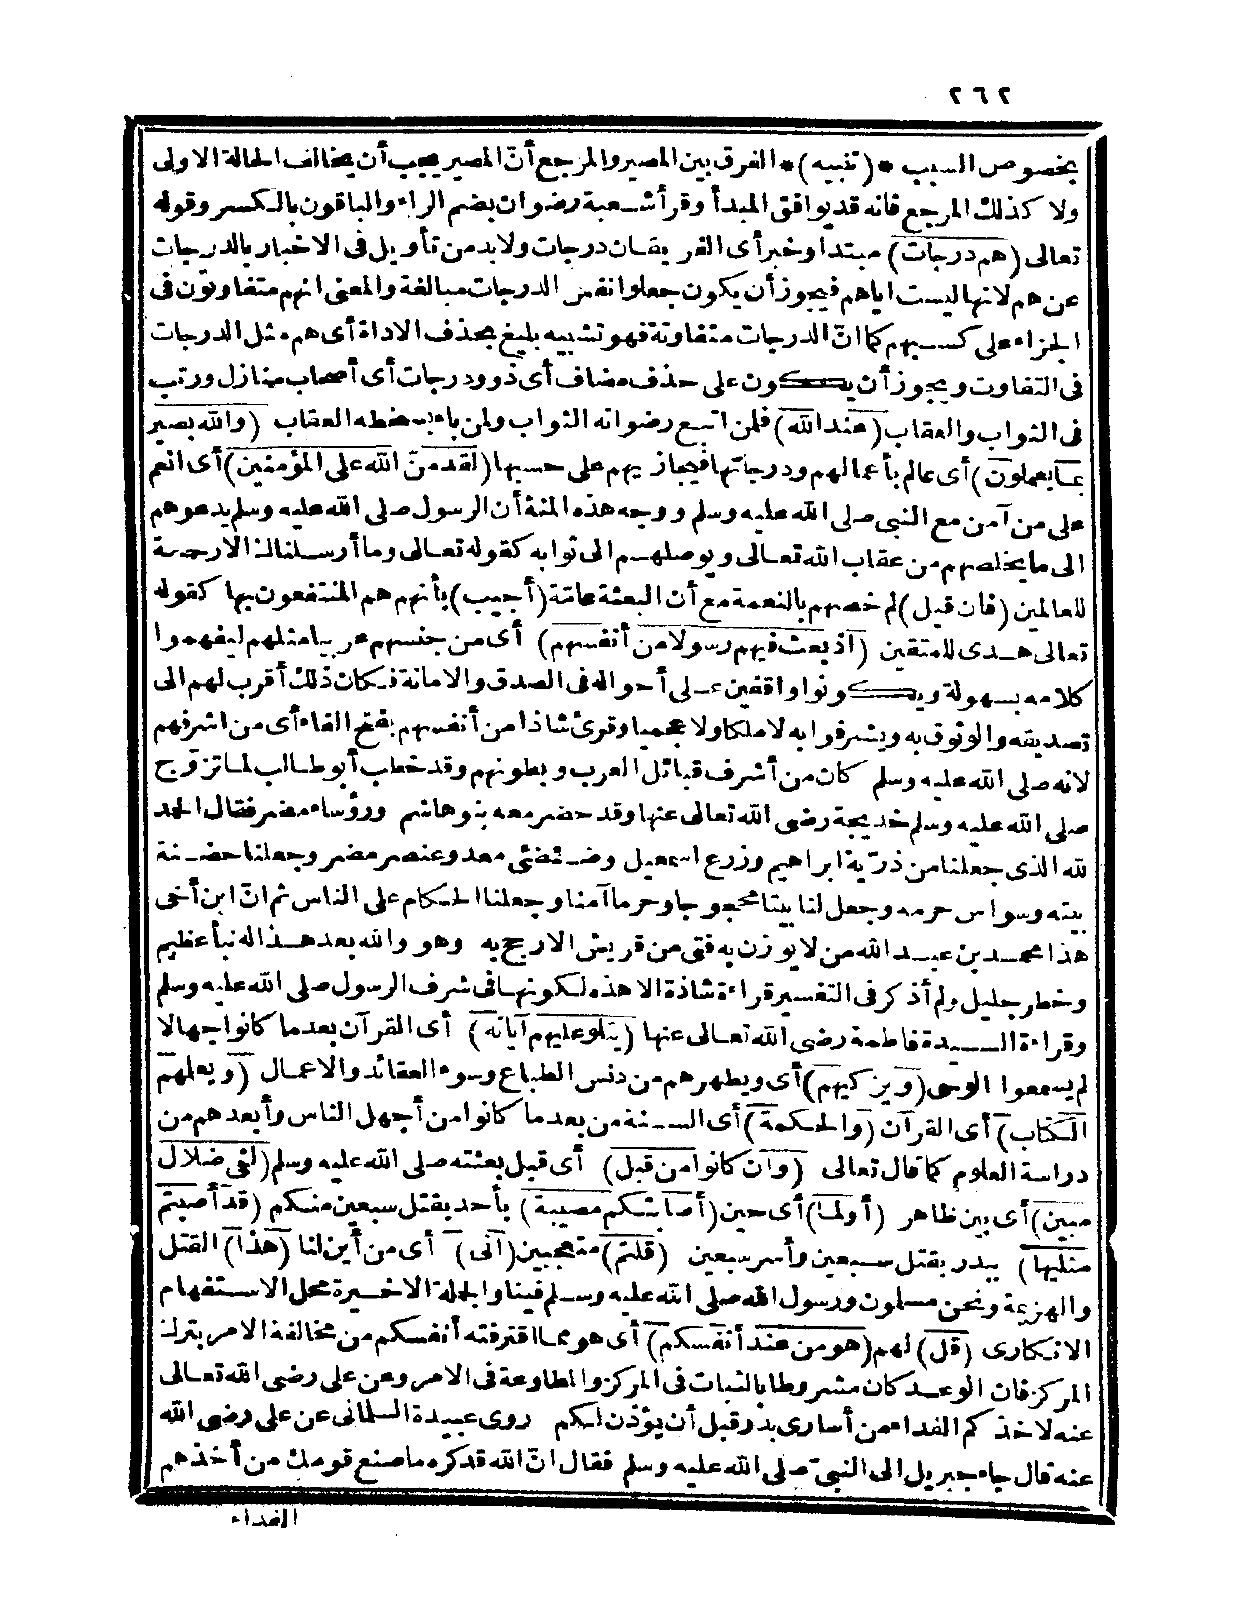 ٢٦٢
بخصوص السبب *(تنبيه)* الفرق بين المصير والمرجع أنّ المصير يجب أن يخالف الحالة الاولى
ولا كذلك المرجع فانه قد يوافق المبدأ وقرأ شعبة رضوان بضم الراء والباقون بالكسر وقوله
تعالى (هم درجات) مبتدا وخبر أى الفريقان درجات ولابد من تأويل فى الاخبار بالدرجات
عن هم لانها ليست اياهم فيجوز أن يكون جعلوا نفس الدرجات مبالغة والمعنى انهم متفاوتون فى
الجزاء على كسبهم كما انّ الدرجات متفاوتة فهو تشبيه بليغ بحذف الاداة أى هم مثل الدرجات
فى التفاوت ويجوز أن يكون على حذف مضاف أى ذوو درجات أى أصحاب منازل ورتب
فى الثواب والعقاب (عند الله) فلمن اتبع رضوانه الثواب ولمن باء بسخطه العقاب (والله بصير
بما يعملون) أى عالم بأعمالهم ودرجاتها فيجازيهم على حسبها (لقد منّ الله على المؤمنين) أى انعم
على من آمن مع النبى صلى الله عليه وسلم ووجه هذه المنة أن الرسول صلى الله عليه وسلم يدعوهم
الى ما يخلصهم من عقاب الله تعالى ويوصلهم الى ثوابه كقوله تعالى وما أرسلناك الا رحمة
للعالمين (فان قيل) لم خصهم بالنعمة مع أن البعثة عامّة (أجيب) بأنهم هم المنتفعون بها كقوله
تعالى هدى للمتقين (اذ بعث فيهم رسولا من أنفسهم) أى من جنسهم عربيا مثلهم ليفهموا
كلامه بسهولة ويكونوا واقفين على أحواله فى الصدق والامانة فكان ذلك أقرب لهم الى
تصديقه والوثوق به ويشرفوا به لا ملكا ولا عجميا وقرئ شاذا من أنفسهم بفتح الفاء أى من اشرفهم
لانه صلى الله عليه وسلم كان من أشرف قبائل العرب وبطونهم وقد خطب أبو طالب لما تزوّج
صلى الله عليه وسلم خديجة رضى الله تعالى عنها وقد حضر معه بنو هاشم ورؤساء مضر فقال الحمد
لله الذى جعلنا من ذرّية ابراهيم وزرع اسمعيل وضئضئى معد وعنصر مضر وجعلنا حضنة
بيته وسواس حرمه وجعل لنا بيتا محجوجا وحرما آمنا وجعلنا الحكام على الناس ثم انّ ابن أخى
هذا محمد بن عبد الله من لا يوزن به فتى من قريش الا رجح به وهو والله بعد هذا له نبأ عظيم
وخطر جليل ولم أذكر فى التفسير قراءة شاذة الا هذه لكونها فى شرف الرسول صلى الله عليه وسلم
وقراءة السيدة فاطمة رضى الله تعالى عنها (يتلو عليهم آياته) أى القرآن بعدما كانوا جهالا
لم يسمعوا الوحى (ويزكيهم) أى ويطهرهم من دنس الطباع وسوء العقائد والاعمال (ويعلمهم
الكتاب) أى القرآن (والحكمة) أى السنة من بعد ما كانوا من أجهل الناس وأبعدهم من
دراسة العلوم كما قال تعالى (وان كانوا من قبل) أى قبل بعثته صلى الله عليه وسلم (لفى ضلال
مبين) أى بين ظاهر (أولما) أى حين (أصابتكم مصيبة) بأحد بقتل سبعين منكم (قد أصبتم
مثليها) ببدر بقتل سبعين وأسر سبعين (قلتم) متعجبين (أنى) أى من أين لنا (هذا) القتل
والهزيمة ونحن مسلمون ورسول الله صلى الله عليه وسلم فينا والجملة الاخيرة محل الاستفهام
الانكارى (قل) لهم (هو من عند أنفسكم) أى هو مما اقترفته أنفسكم من مخالفة الامر بترك
المركز فان الوعد كان مشروطا بالثبات فى المركز والمطاوعة فى الامر وعن على رضى الله تعالى
عنه لاخذكم الفداء من أسارى بدر قبل أن يؤذن لكم روى عبيدة السلمانى عن على رضى الله
عنه قال جاء جبريل الى النبىّ صلى الله عليه وسلم فقال انّ الله قد كره ما صنع قومك من أخذهم
الفداء